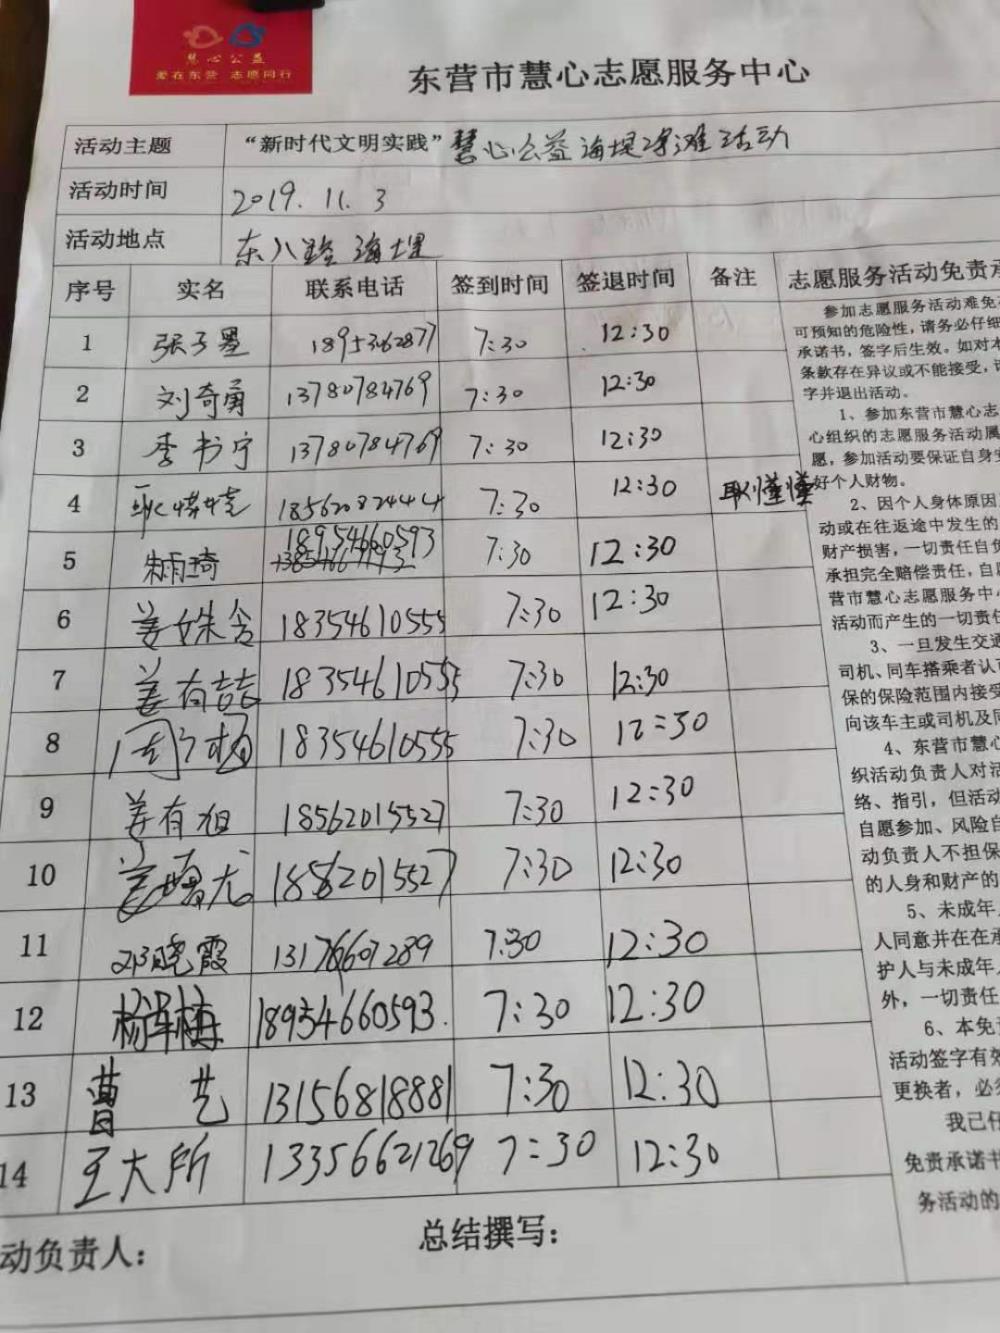 慧心公益
爱在东营 志愿同行
东营市慧心志愿服务中心
活动主题 “新时代文明实践”慧心公益海堤净滩活动
活动时间 2019.11.3
活动地点 东八路海堤
序号 实名 联系电话 签到时间 签退时间 备注 志愿服务活动免责承
1 张子墨 18953462877 7:30 12:30
2 刘奇勇 13780784769 7:30 12:30
3 李书宁 13780784769 7:30 12:30
4 耿懂懂 18562082444 7:30 12:30 耿懂懂
5 朱雨琦 18954660593 7:30 12:30
6 姜姝含 18354610555 7:30 12:30
7 姜有喆 18354610555 7:30 12:30
8 周杨 18354610555 7:30 12:30
9 姜有旭 18562015527 7:30 12:30
10 姜曙光 18562015527 7:30 12:30
11 邓晓霞 13176607289 7:30 12:30
12 杨泽梅 18954660593. 7:30 12:30
13 曹艺 13156818881 7:30 12:30
14 王大所 13356621269 7:30 12:30
动负责人： 总结撰写：
参加志愿服务活动难免
可预知的危险性，请务必仔细
承诺书，签字后生效。如对本
条款存在异议或不能接受，
字并退出活动。
1、参加东营市慧心志
心组织的志愿服务活动属
愿，参加活动要保证自身安
好个人财物。
2、因个人身体原因
动或在往返途中发生的
财产损害，一切责任自负
承担完全赔偿责任，自愿
营市慧心志愿服务中心
活动而产生的一切责任
3、一旦发生交通
司机、同车搭乘者认可
保的保险范围内接受
向该车主或司机及同
4、东营市慧心
织活动负责人对活
络、指引，但活动
自愿参加、风险自
动负责人不担保
的人身和财产的
5、未成年人
人同意并在在承
护人与未成年人
外，一切责任
6、本免责
活动签字有效
更换者，必须
我已仔
免责承诺书
务活动的